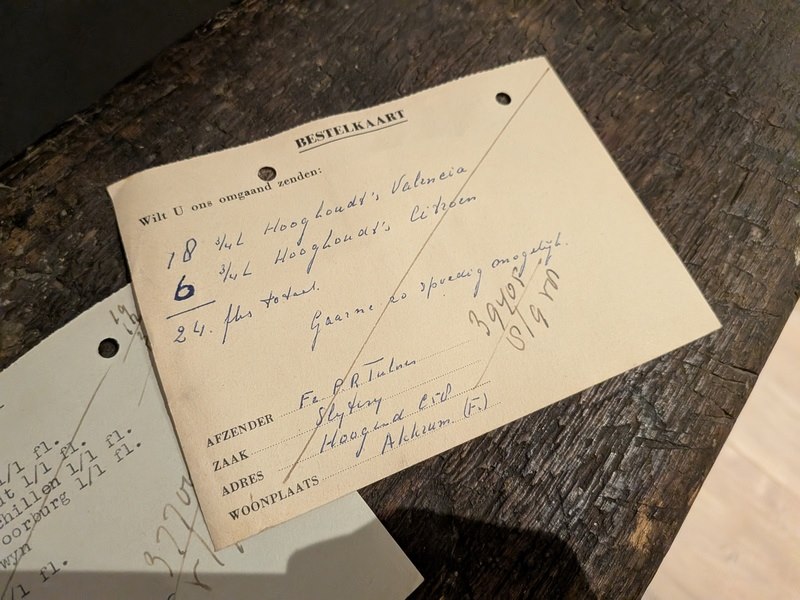 BESTELKAART
Wilt U ons omgaand zenden:
18 3/4L Hooghoudt's Valencia
6 3/4L Hooghoudt's Citroen
24. fls totaal.
Gaarne zo spoedig mogelijk.
AFZENDER Fa. P.R.
ZAAK Slyterij
ADRES Hoogend
WOONPLAATS Akkrum. (Fr.)
1/1 fl.
1/1 fl.
1/1 fl.
oorburg 1/1 fl.
wyn
fl.